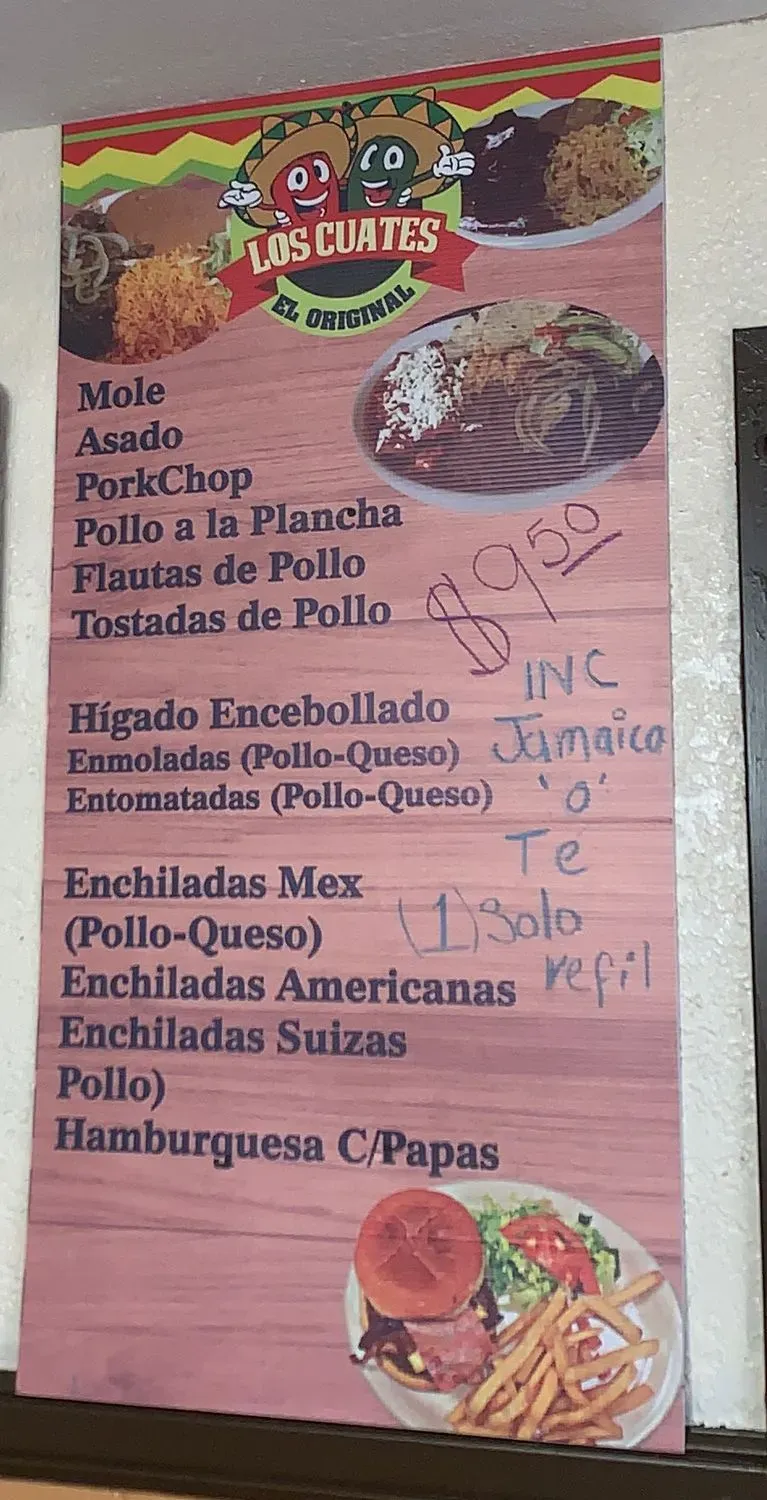 LOS CUATES
EL ORIGINAL
Mole
Asado
PorkChop
Pollo a la Plancha
Flautas de Pollo
Tostadas de Pollo
$9.50
INC
Jamaica
'o'
Te
(1) Solo
refil
Hígado Encebollado
Enmoladas (Pollo-Queso)
Entomatadas (Pollo-Queso)
Enchiladas Mex
(Pollo-Queso)
Enchiladas Americanas
Enchiladas Suizas
Pollo)
Hamburguesa C/Papas